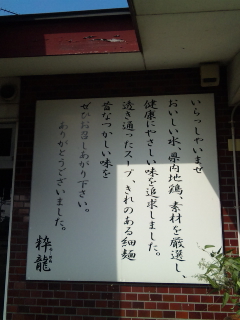 いらっしゃいませ
おいしい水、県内地鶏、素材を厳選し、
健康にやさしい味を追求しました。
透き通ったスープ、きれのある細麺
昔なつかしい味を
ぜひお召しあがり下さい。
ありがとうございました。
粋龍